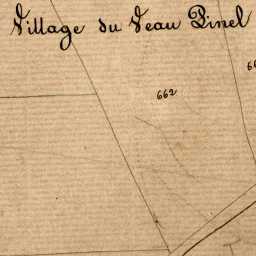 Village du Veau Pinel
662